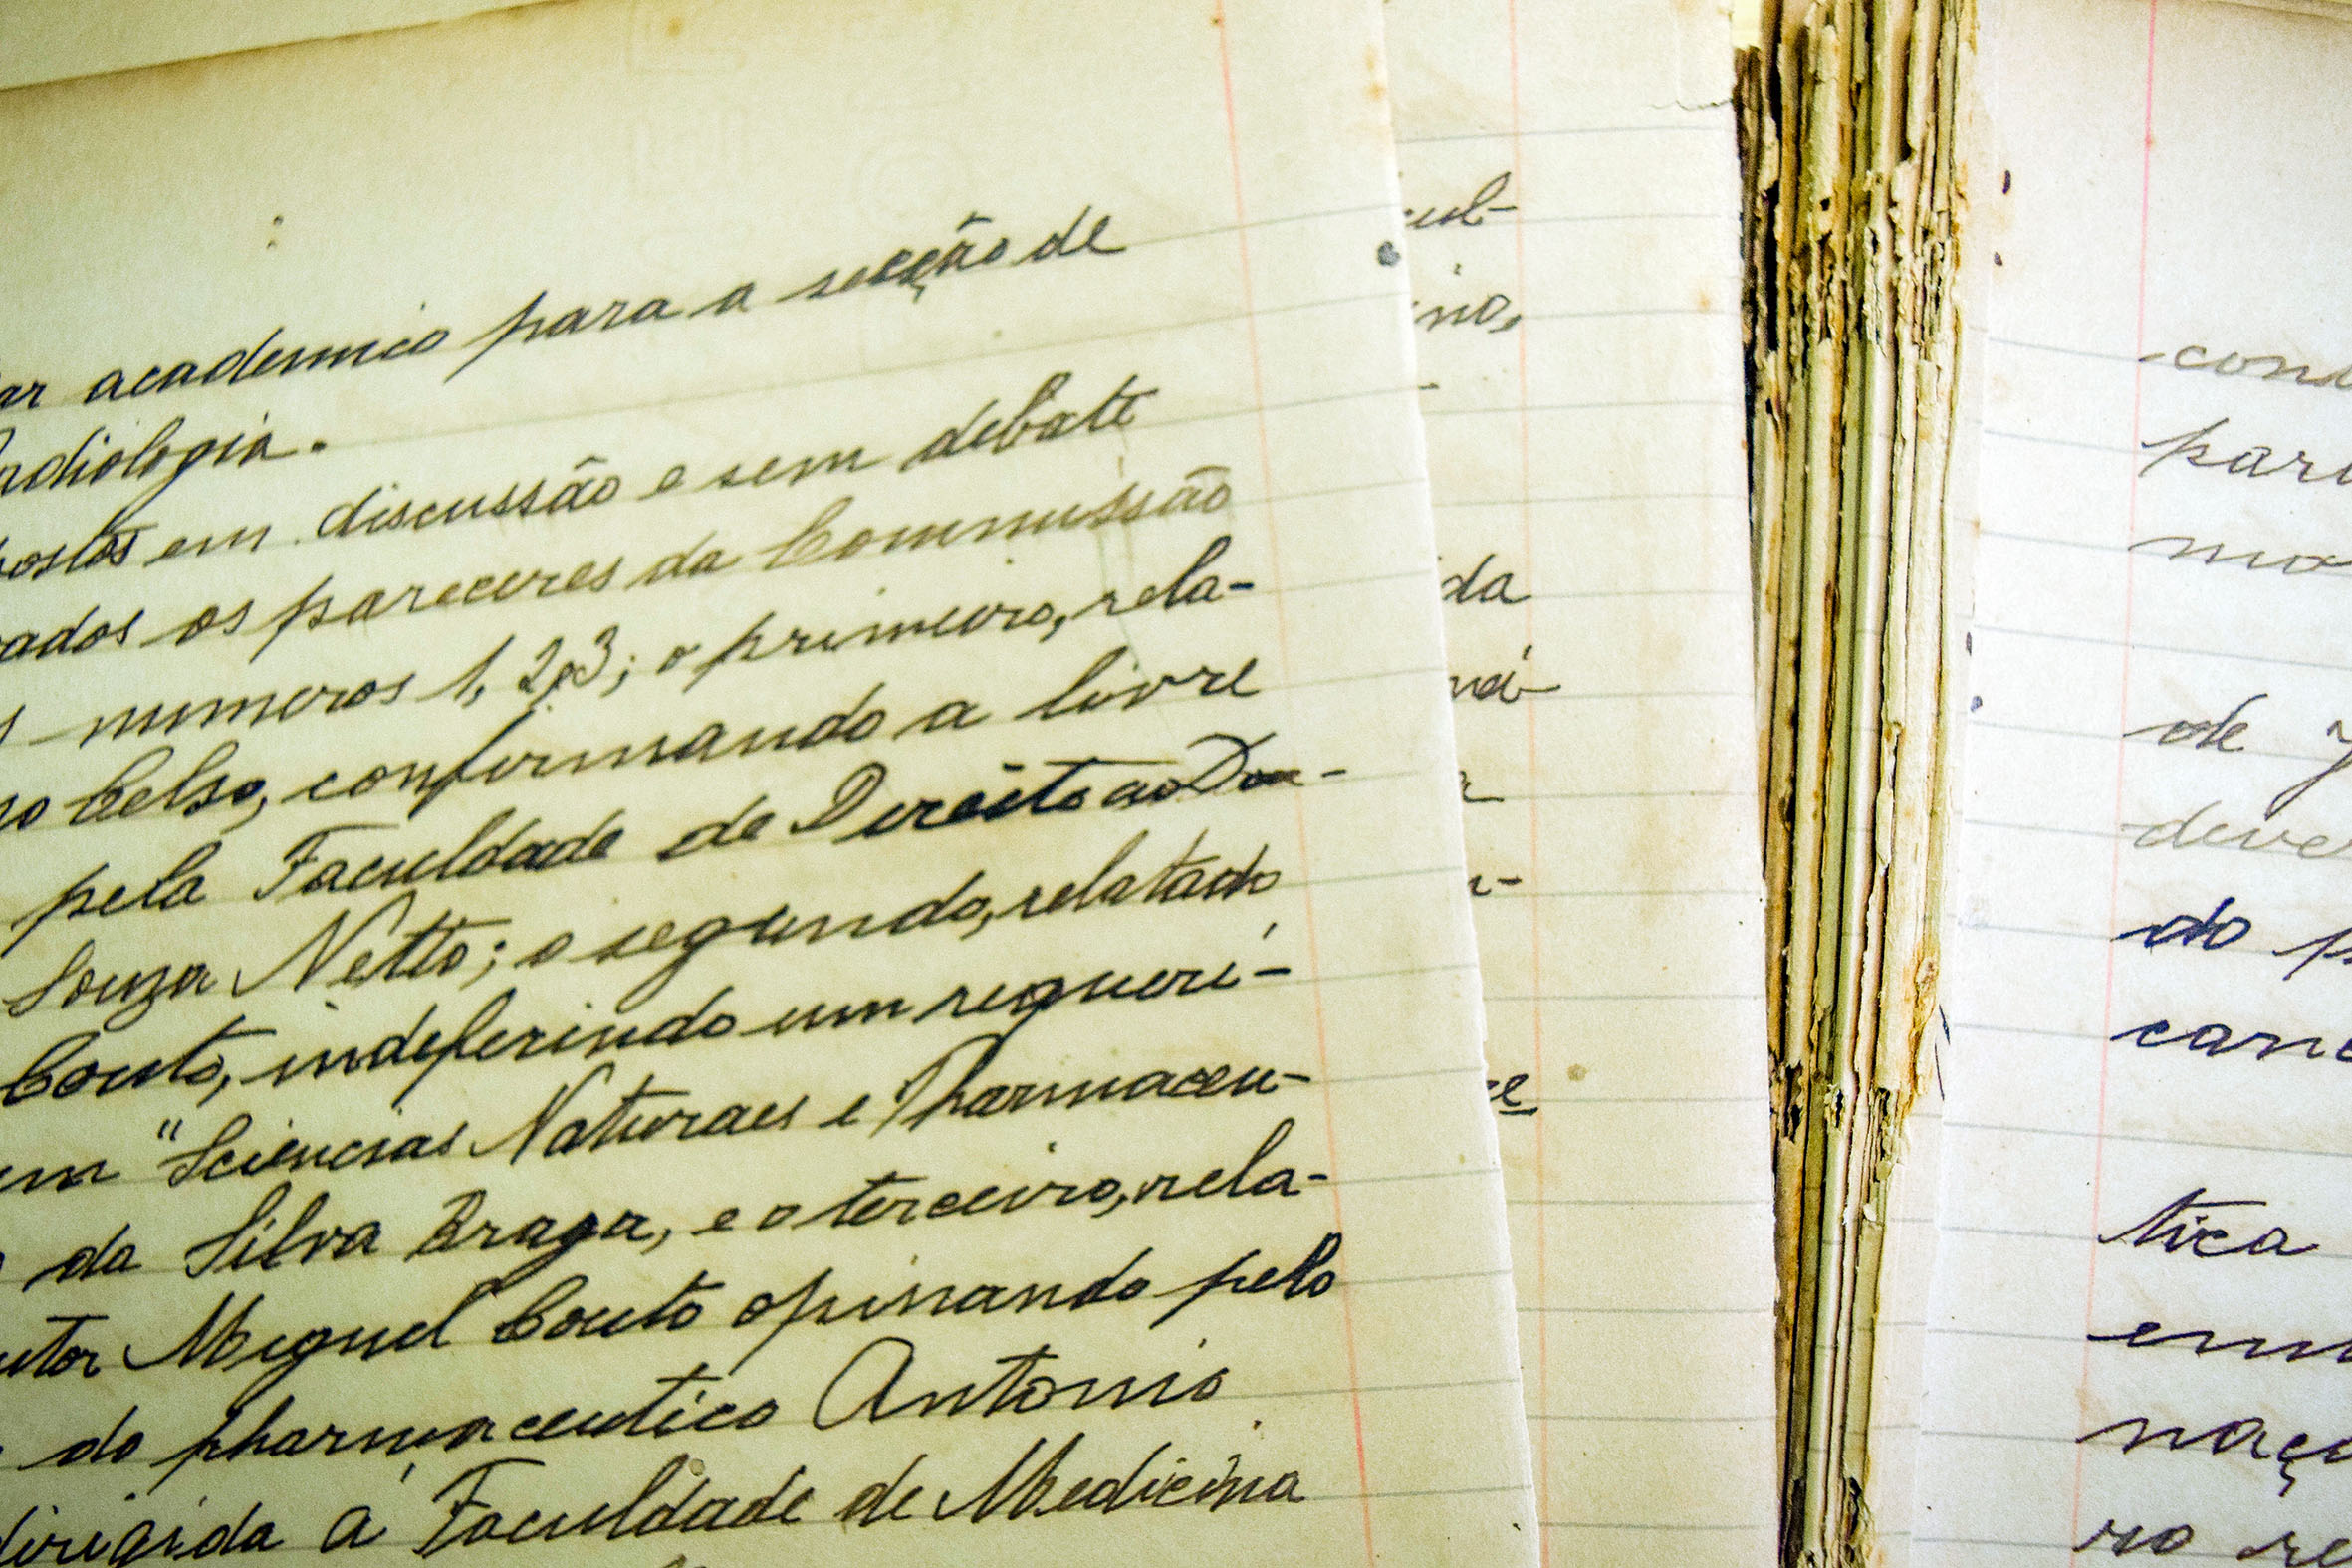 academico para a secção de
adiologia.
ostos em discussão e sem debate
ados os pareceres da Commissão
numeros 1, 2, 3; o primeiro, rela-
Celso, confirmando a livre
pela Faculdade de Direito ao Dou-
Souza Netto; o segundo, relatado
Couto, indeferindo um requeri-
em "Sciencias Naturaes e Pharmaceu-
da Silva Braga, e o terceiro, rela-
utor Miguel Couto opinando pelo
do pharmaceutico Antonio
dirigida á Faculdade de Medicina
cul-
no,
da
ná-
ce
cons
para
mo
de
deve
do p
canc
tica
em
naçã
ro re